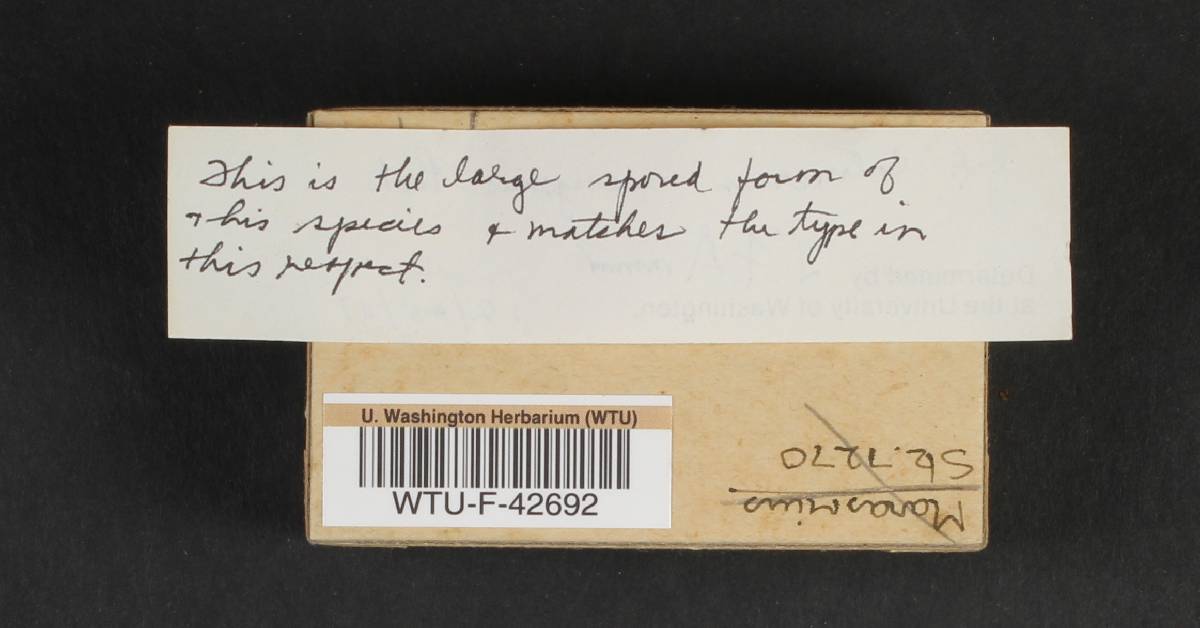 This is the large spored form of
this species & matches the type in
this respect.
Determined by
at the University of Washington,
U. Washington Herbarium (WTU)
WTU-F-42692
Marasmius
Stz. 7270